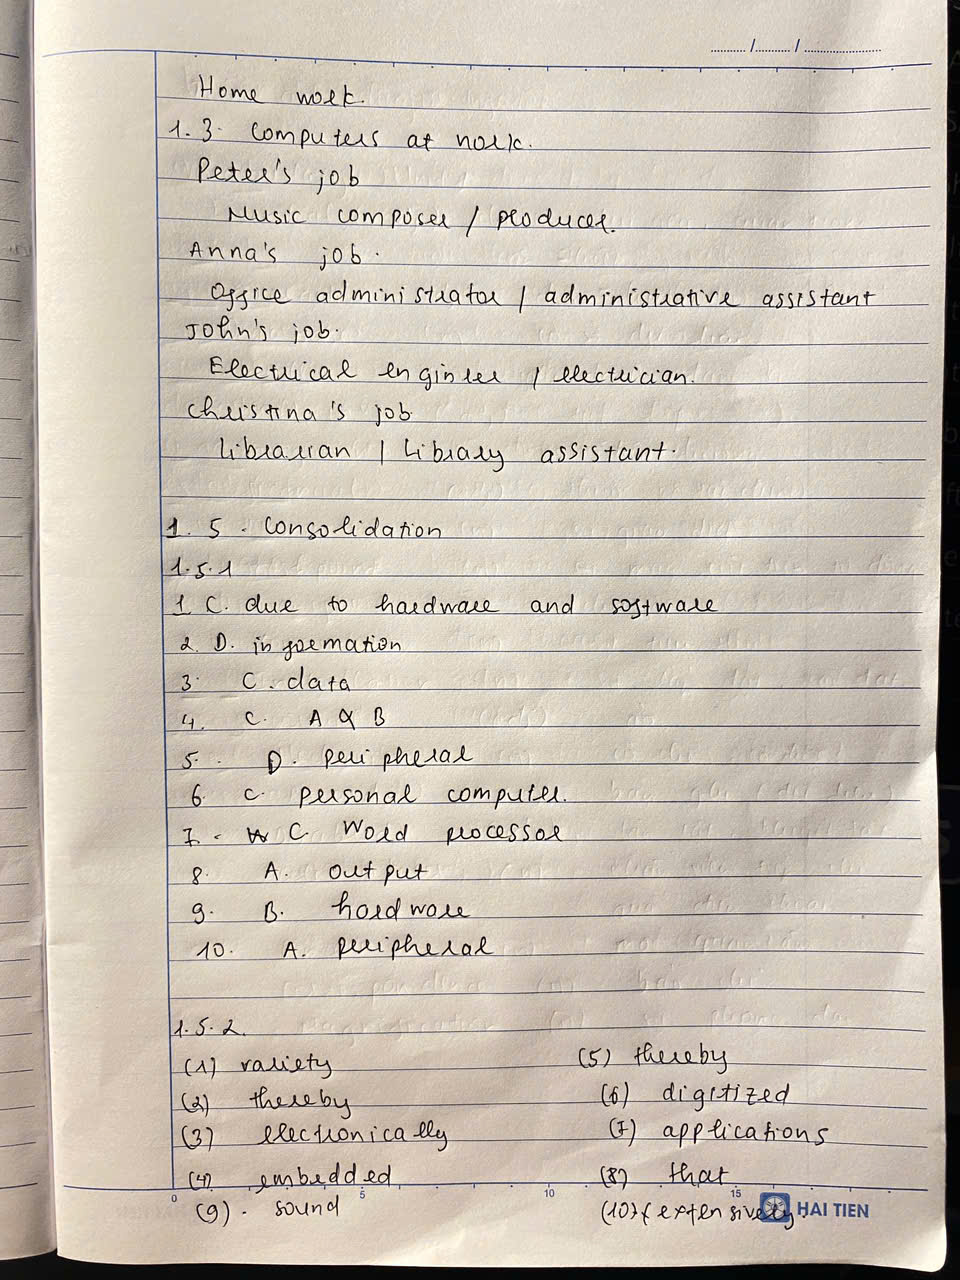 ............/............/........................
Home work.
1.3. Computers at work.
Peter's job
Music composer / producer.
Anna's job.
Office administrator / administrative assistant
John's job.
Electrical engineer / electrician.
Christina's job
Librarian / Library assistant.
1.5. Consolidation
1.5.1
1 C. due to hardware and software
2. D. information
3. C. data
4. C. A & B
5. D. peripheral
6 C. personal computer.
7. C. Word processor
8. A. output
9. B. hardware
10. A. peripheral
1.5.2.
(1) variety (5) thereby
(2) thereby (6) digitized
(3) electronically (7) applications
(4) embedded (8) that
0 5 10 15
(9). sound (10) extensively.
HAI TIEN